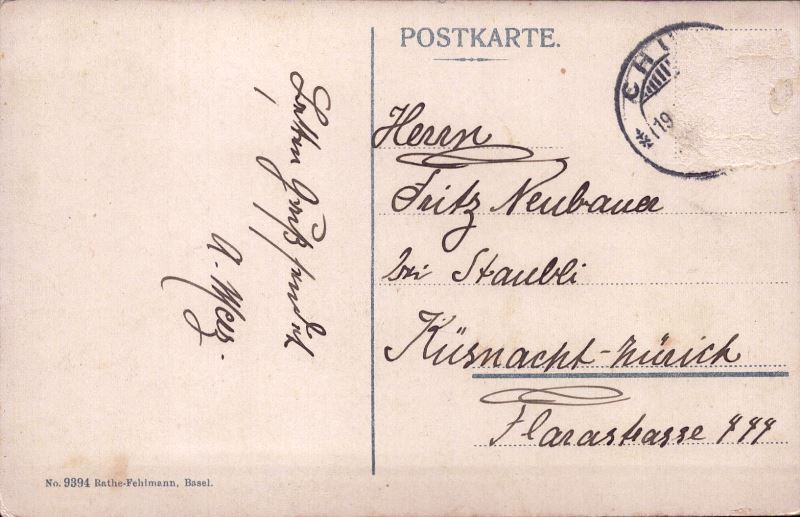 POSTKARTE.
CHU
19
Herrn
Fritz Neubauer
bei Staubli
Küsnacht-Zürich
Florastrasse
Gruß sendet
No. 9394 Rathe-Fehlmann, Basel.